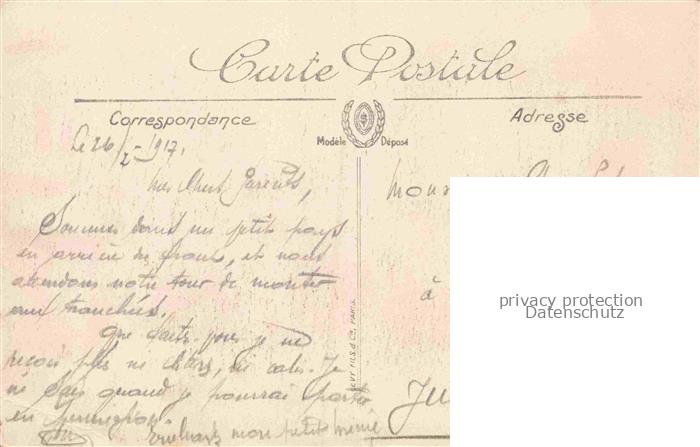 Carte Postale
Correspondance
Adresse
Modèle Déposé
Le 26/2-1917.
mes Chers parents,
Sommes dans un petit pays
en arrière du front, et nous
attendons notre tour de monter
aux tranchées.
Que je ne
reçois plus ni lettres, ni colis. Je
ne sais quand je pourrai partir
en permission.
mon petit
à
LEVY FILS & Cie, PARIS.
privacy protection
Datenschutz